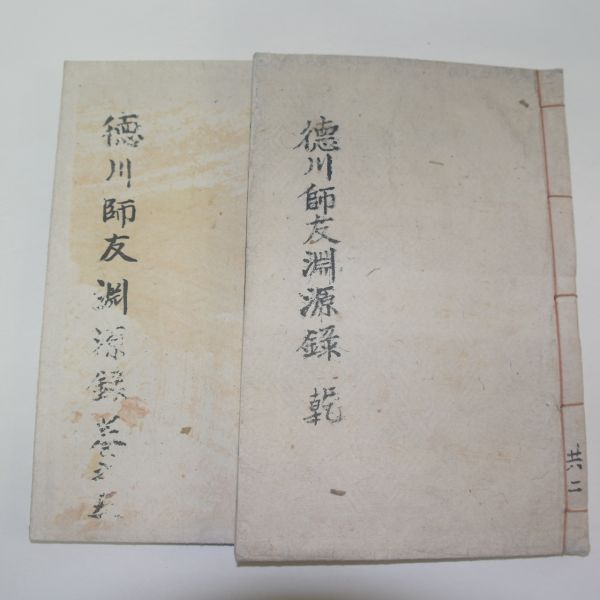 德川師友淵源錄 乾
共二
德川師友淵源錄 卷之五